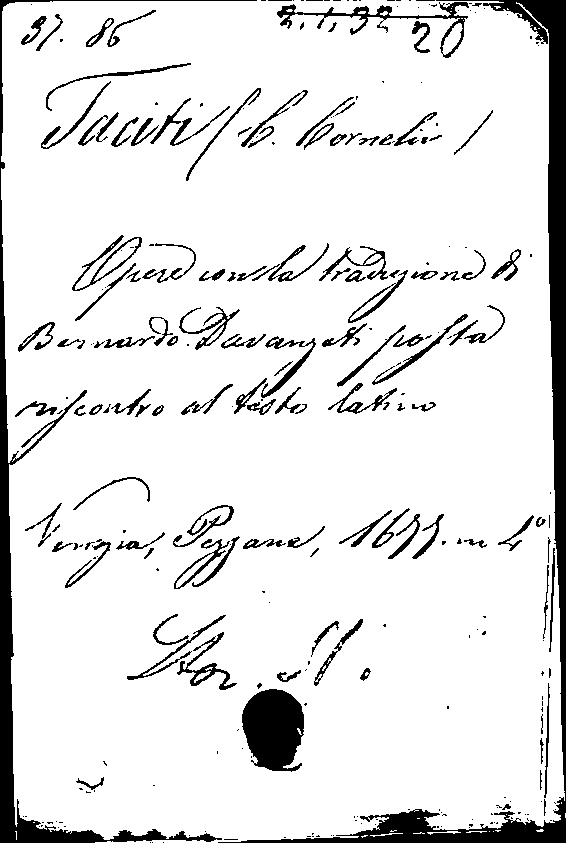 37. 86 2.1.32 20
Taciti (C. Cornelii)
Opere con la traduzione di
Bernardo Davanzati posta
riscontro al testo latino
Venezia, Pezzana, 1677. in 4°
Stor.